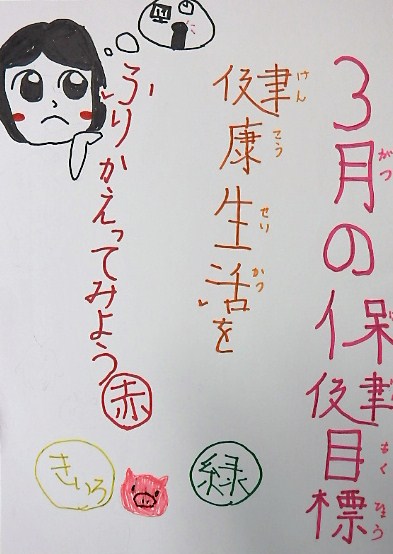 3月の保健目標
がつ
もくひょう
健康生活を
けんこうせいかつ
ふりかえってみよう
赤
緑
きいろ